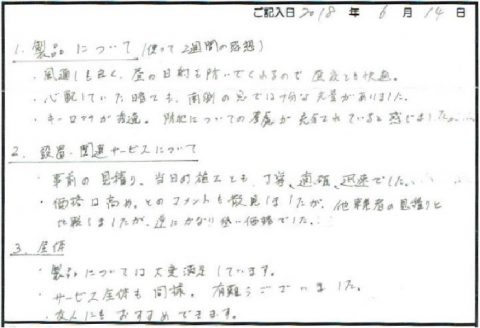 ご記入日 2018 年 6 月 14 日
1. 製品について (使って2週間の感想)
・風通しも良く、昼の日射も防いでくれるので昼夜とも快適。
・心配していた暗さも、南側の窓では十分な光量がありました。
・キーロックが普通。防犯についての考慮が充分されていると感じました。
2. 設置・関連サービスについて
・事前の見積り、当日の施工とも、丁寧、適確、迅速でした。
・価格は高め。とのコメントも散見しましたが、他業者の見積りと
比較しましたが、逆にかなり低い価格でした。
3. 全体
・製品については大変満足しています。
・サービス全体も同様。有難うございました。
・友人にもおすすめできます。